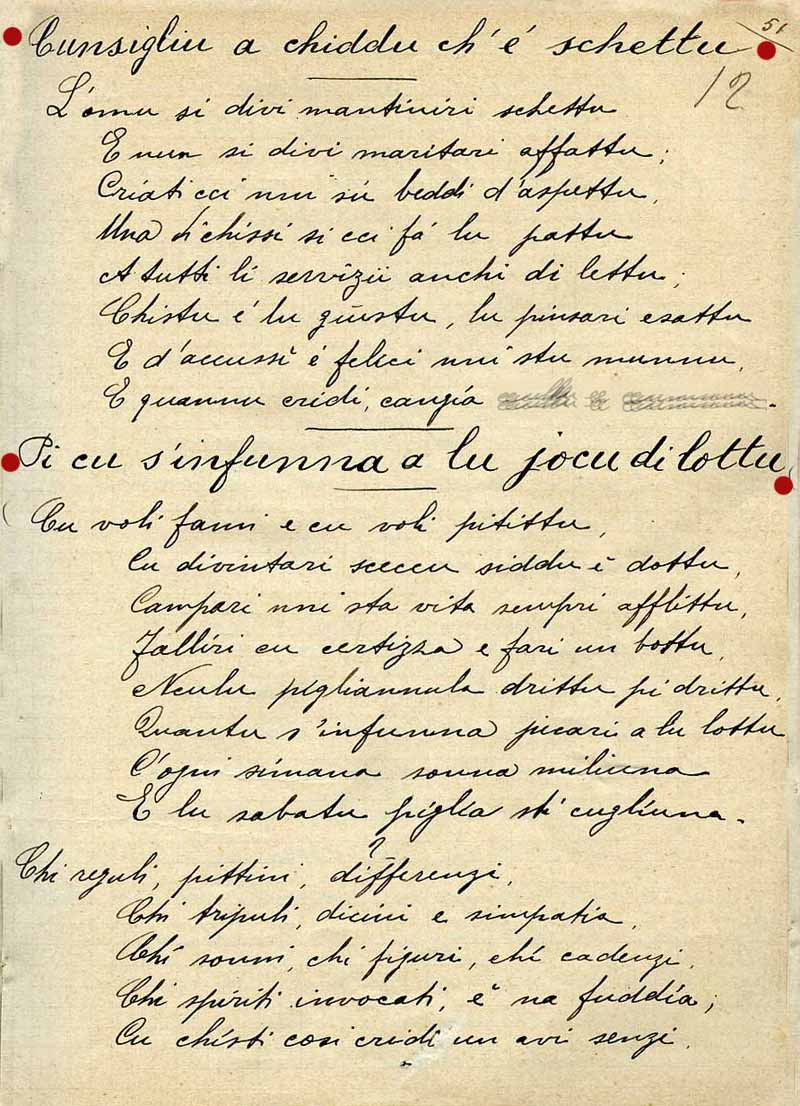 51
Cunsigliu a chiddu ch'é schettu
12
L'omu si divi mantiniri schettu
E nun si divi maritari affattu;
Criati cci nni sù beddi d'aspettu,
Una di chissi si cci fá lu pattu
A tutti li servizii anchi di lettu;
Chistu é lu giustu, lu pinsari esattu
E d'accussì é felici nni stu munnu,
E quannu cridi, cangia
Pi cu s'infunna a lu jocu di lottu
Cu voli fami e cu voli pitittu,
Cu divintari sceccu siddu é dottu,
Campari nni sta vita sempri afflittu,
Falliri cu certizza e fari un bottu,
Nculu pigliannula drittu pi drittu,
Quantu s'infunna jucari a lu lottu
C'ogni simana sonna miliuna
E lu sabatu piglia sti cugliuna.
?
Chi reguli, pittini, differenzi,
Chi tripuli, dicini e simpatia,
Chi sonni, chi figuri, chi cadenzi,
Chi spiriti invocati, é na fuddía;
Cu chisti cosi cridi un avi senzi.